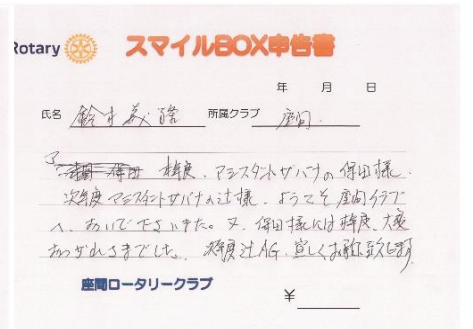 Rotary スマイルBOX申告書
年 月 日
氏名 鈴木義 所属クラブ 座間
本年度、アシスタントガバナの保田様、
次年度アシスタントガバナの辻様、ようこそ座間クラブ
へ、おいで下さいました。又、保田様には本年度、大変
おつかれさまでした。次年度辻AG、宜しくお願い致します
座間ロータリークラブ
¥